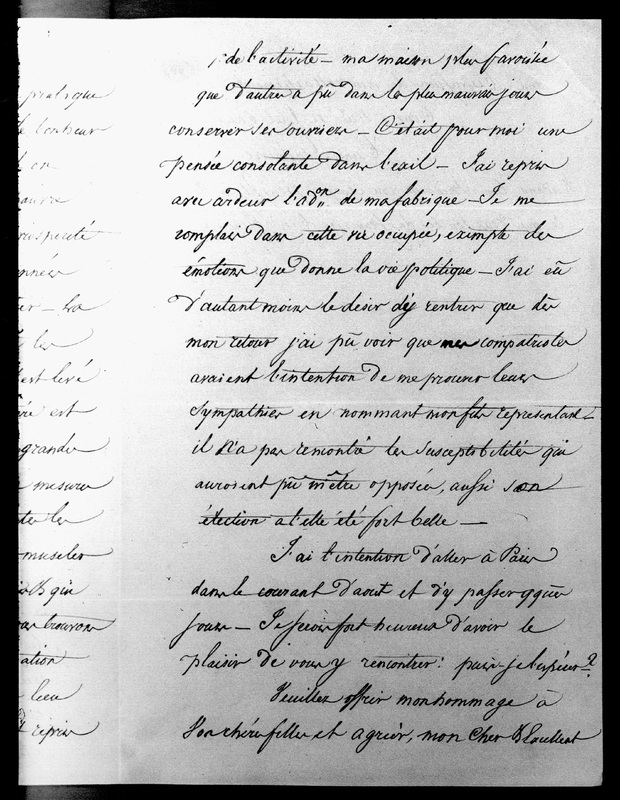 pratique
bonheur
on
périté
nnées
er - la
les
est levé
est
grande
mesure
te les
museler
qui
trouvons
ation
lieu
repris
de l'activité - ma maison plus favorisée
que d'autres a pû dans les plus mauvais jours
conserver ses ouvriers - C'était pour moi une
pensée consolante dans l'exil - J'ai repris
avec ardeur l'adon de ma fabrique - Je me
complais dans cette vie occupée, exempte des
émotions que donne la vie politique - J'ai eû
d'autant moins le désir d'y rentrer que dès
mon retour j'ai pû voir que mes compatriotes
avaient l'intention de me prouver leurs
sympathies en nommant mon fils représentant
il n'a pas remontré les susceptibilités qui
auroient pû m'être opposées, aussi son
élection a t'elle été fort belle -
J'ai l'intention d'aller à Paris
dans le courant d'aout et d'y passer qques
jours - Je serois fort heureux d'avoir le
plaisir de vous y rencontrer : puis-je l'espérer ?
Veuillez offrir mon hommage à
vos chères filles et agréer, mon cher